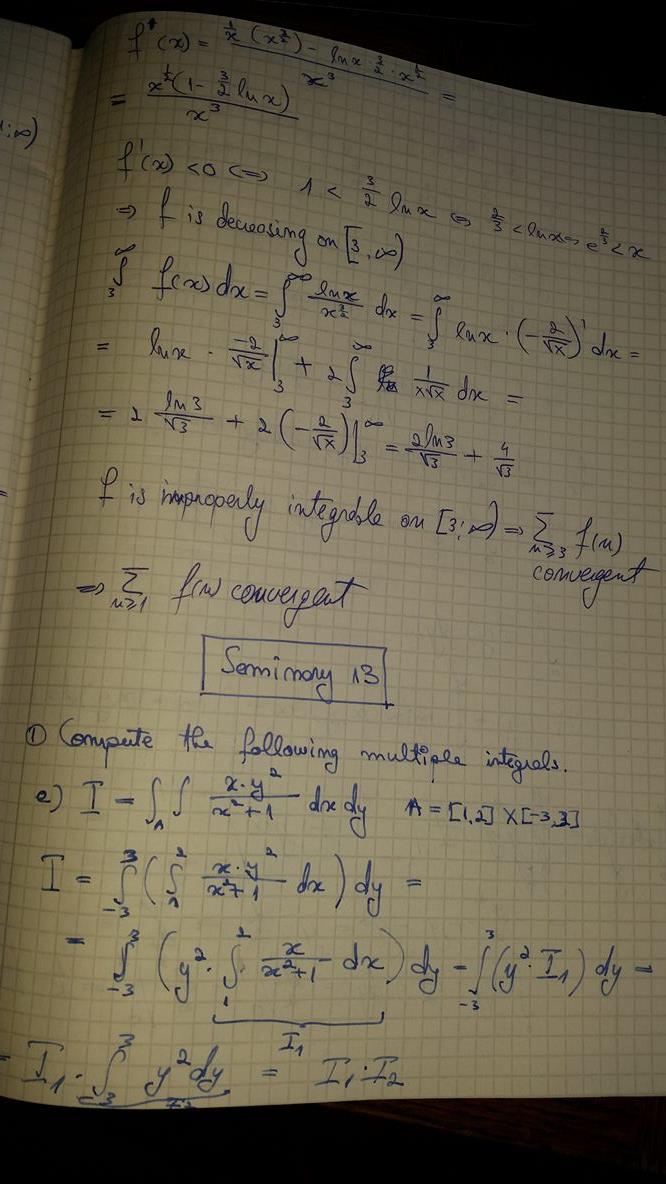 ; ∞)
f'(x) = \frac{\frac{1}{x} (x^{\frac{3}{2}}) - ln x · \frac{3}{2} · x^{\frac{1}{2}}}{x^3} =
= \frac{x^{\frac{1}{2}} (1 - \frac{3}{2} ln x)}{x^3}
f'(x) < 0 <=> 1 < \frac{3}{2} ln x <=> \frac{2}{3} < ln x => e^{\frac{2}{3}} < x
=> f is decreasing on [3, ∞)
∫_3^∞ f(x) dx = ∫_3^∞ \frac{ln x}{x^{\frac{3}{2}}} dx = ∫_3^∞ ln x · (-\frac{2}{√x})' dx =
= ln x · \frac{-2}{√x} |_3^∞ + 2 ∫_3^∞ \frac{1}{x√x} dx =
= 2 \frac{ln 3}{√3} + 2 (-\frac{2}{√x}) |_3^∞ = \frac{2 ln 3}{√3} + \frac{4}{√3}
f is improperly integrable on [3; ∞) => ∑_{n≥3} f(n)
convergent
=> ∑_{n≥1} f(n) convergent
Seminary 13
① Compute the following multiple integrals.
e) I = ∫_A ∫ \frac{x·y^2}{x^2+1} dx dy A = [1,2] X [-3,3]
I = ∫_{-3}^3 (∫_1^2 \frac{x·y^2}{x^2+1} dx) dy =
= ∫_{-3}^3 (y^2 · ∫_1^2 \frac{x}{x^2+1} dx) dy = ∫_{-3}^3 (y^2 · I_1) dy =
I_1
= I_1 · ∫_{-3}^3 y^2 dy = I_1 · I_2
I_2